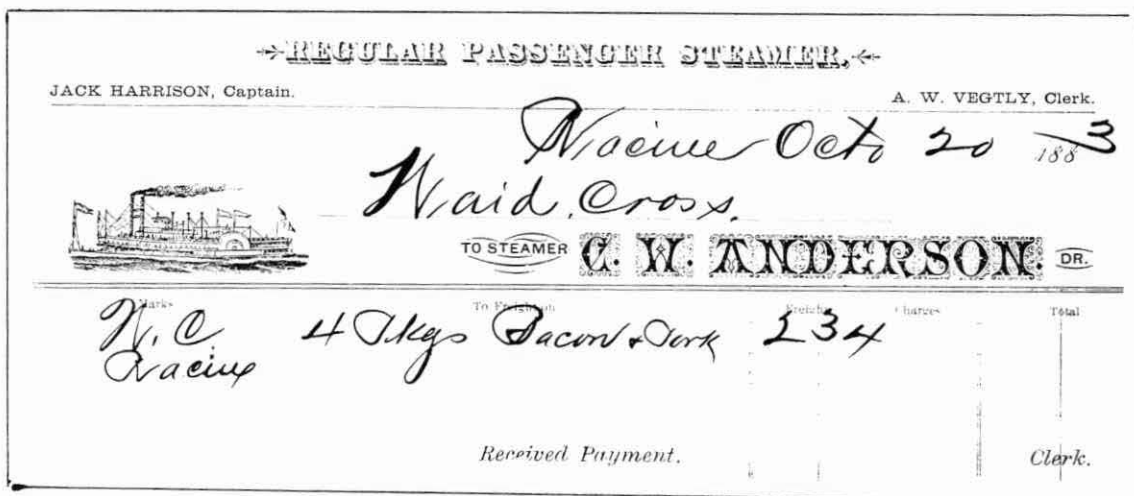 REGULAR PASSENGER STEAMER,
JACK HARRISON, Captain. A. W. VEGTLY, Clerk.
Racine Octo 20 1883
Waid Cross.
TO STEAMER C. W. ANDERSON. DR.
Marks To Freight on Freight Charges Total
W. C 4 Pkgs Bacon & Pork 234
Racine
Received Payment. Clerk.